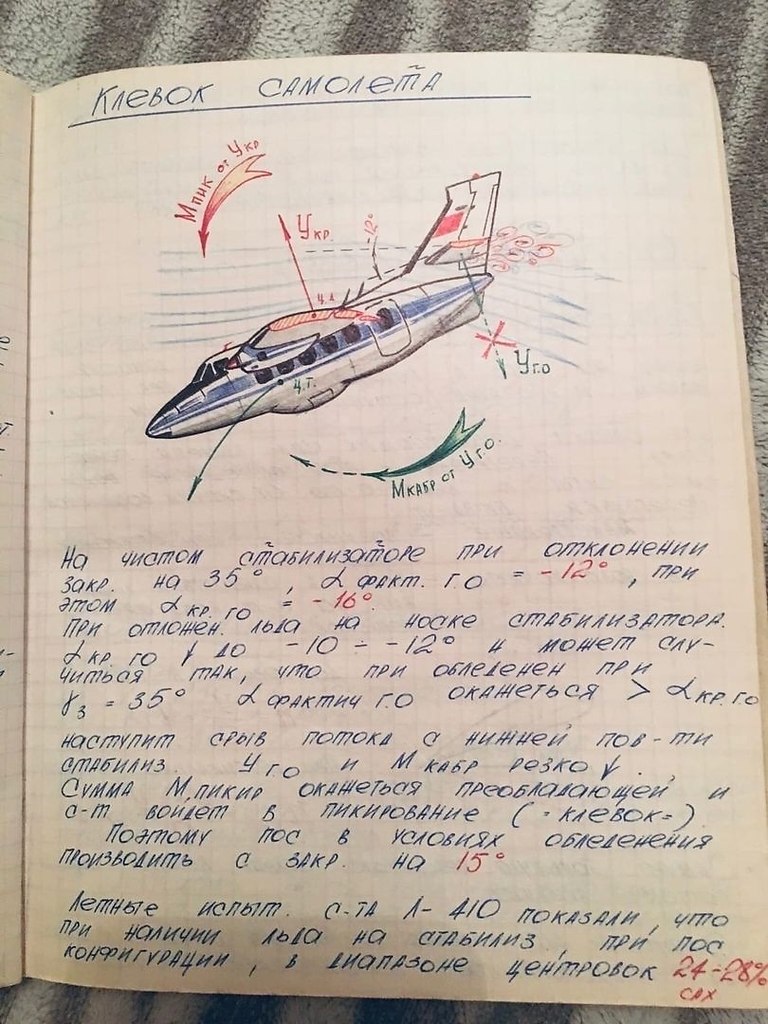 Клевок самолета
Мпик от Укр
Укр.
-12°
ц.д.
ц.т.
Уг.о
Мкабр от Уг.о.
На чистом стабилизаторе при отклонении
закр. на 35°, α факт. г.о = -12°, при
этом α кр. го = -16°.
При отложен. льда на носке стабилизатора.
α кр. го ↓ до -10 ÷ -12° и может слу-
читься так, что при обледенен при
γз = 35° α фактич г.о окажеться > α кр. г.о
наступит срыв потока с нижней пов-ти
стабилиз. У г.о и М кабр резко ↓.
Сумма М пикир окажеться преобладающей и
с-т войдет в пикирование (=клевок=).
Поэтому пос в условиях обледенения
производить с закр. на 15°
Летные испыт. с-та Л-410 показали, что
при наличии льда на стабилиз, при пос
конфигурации, в диапазоне центровок 24-28%
сах